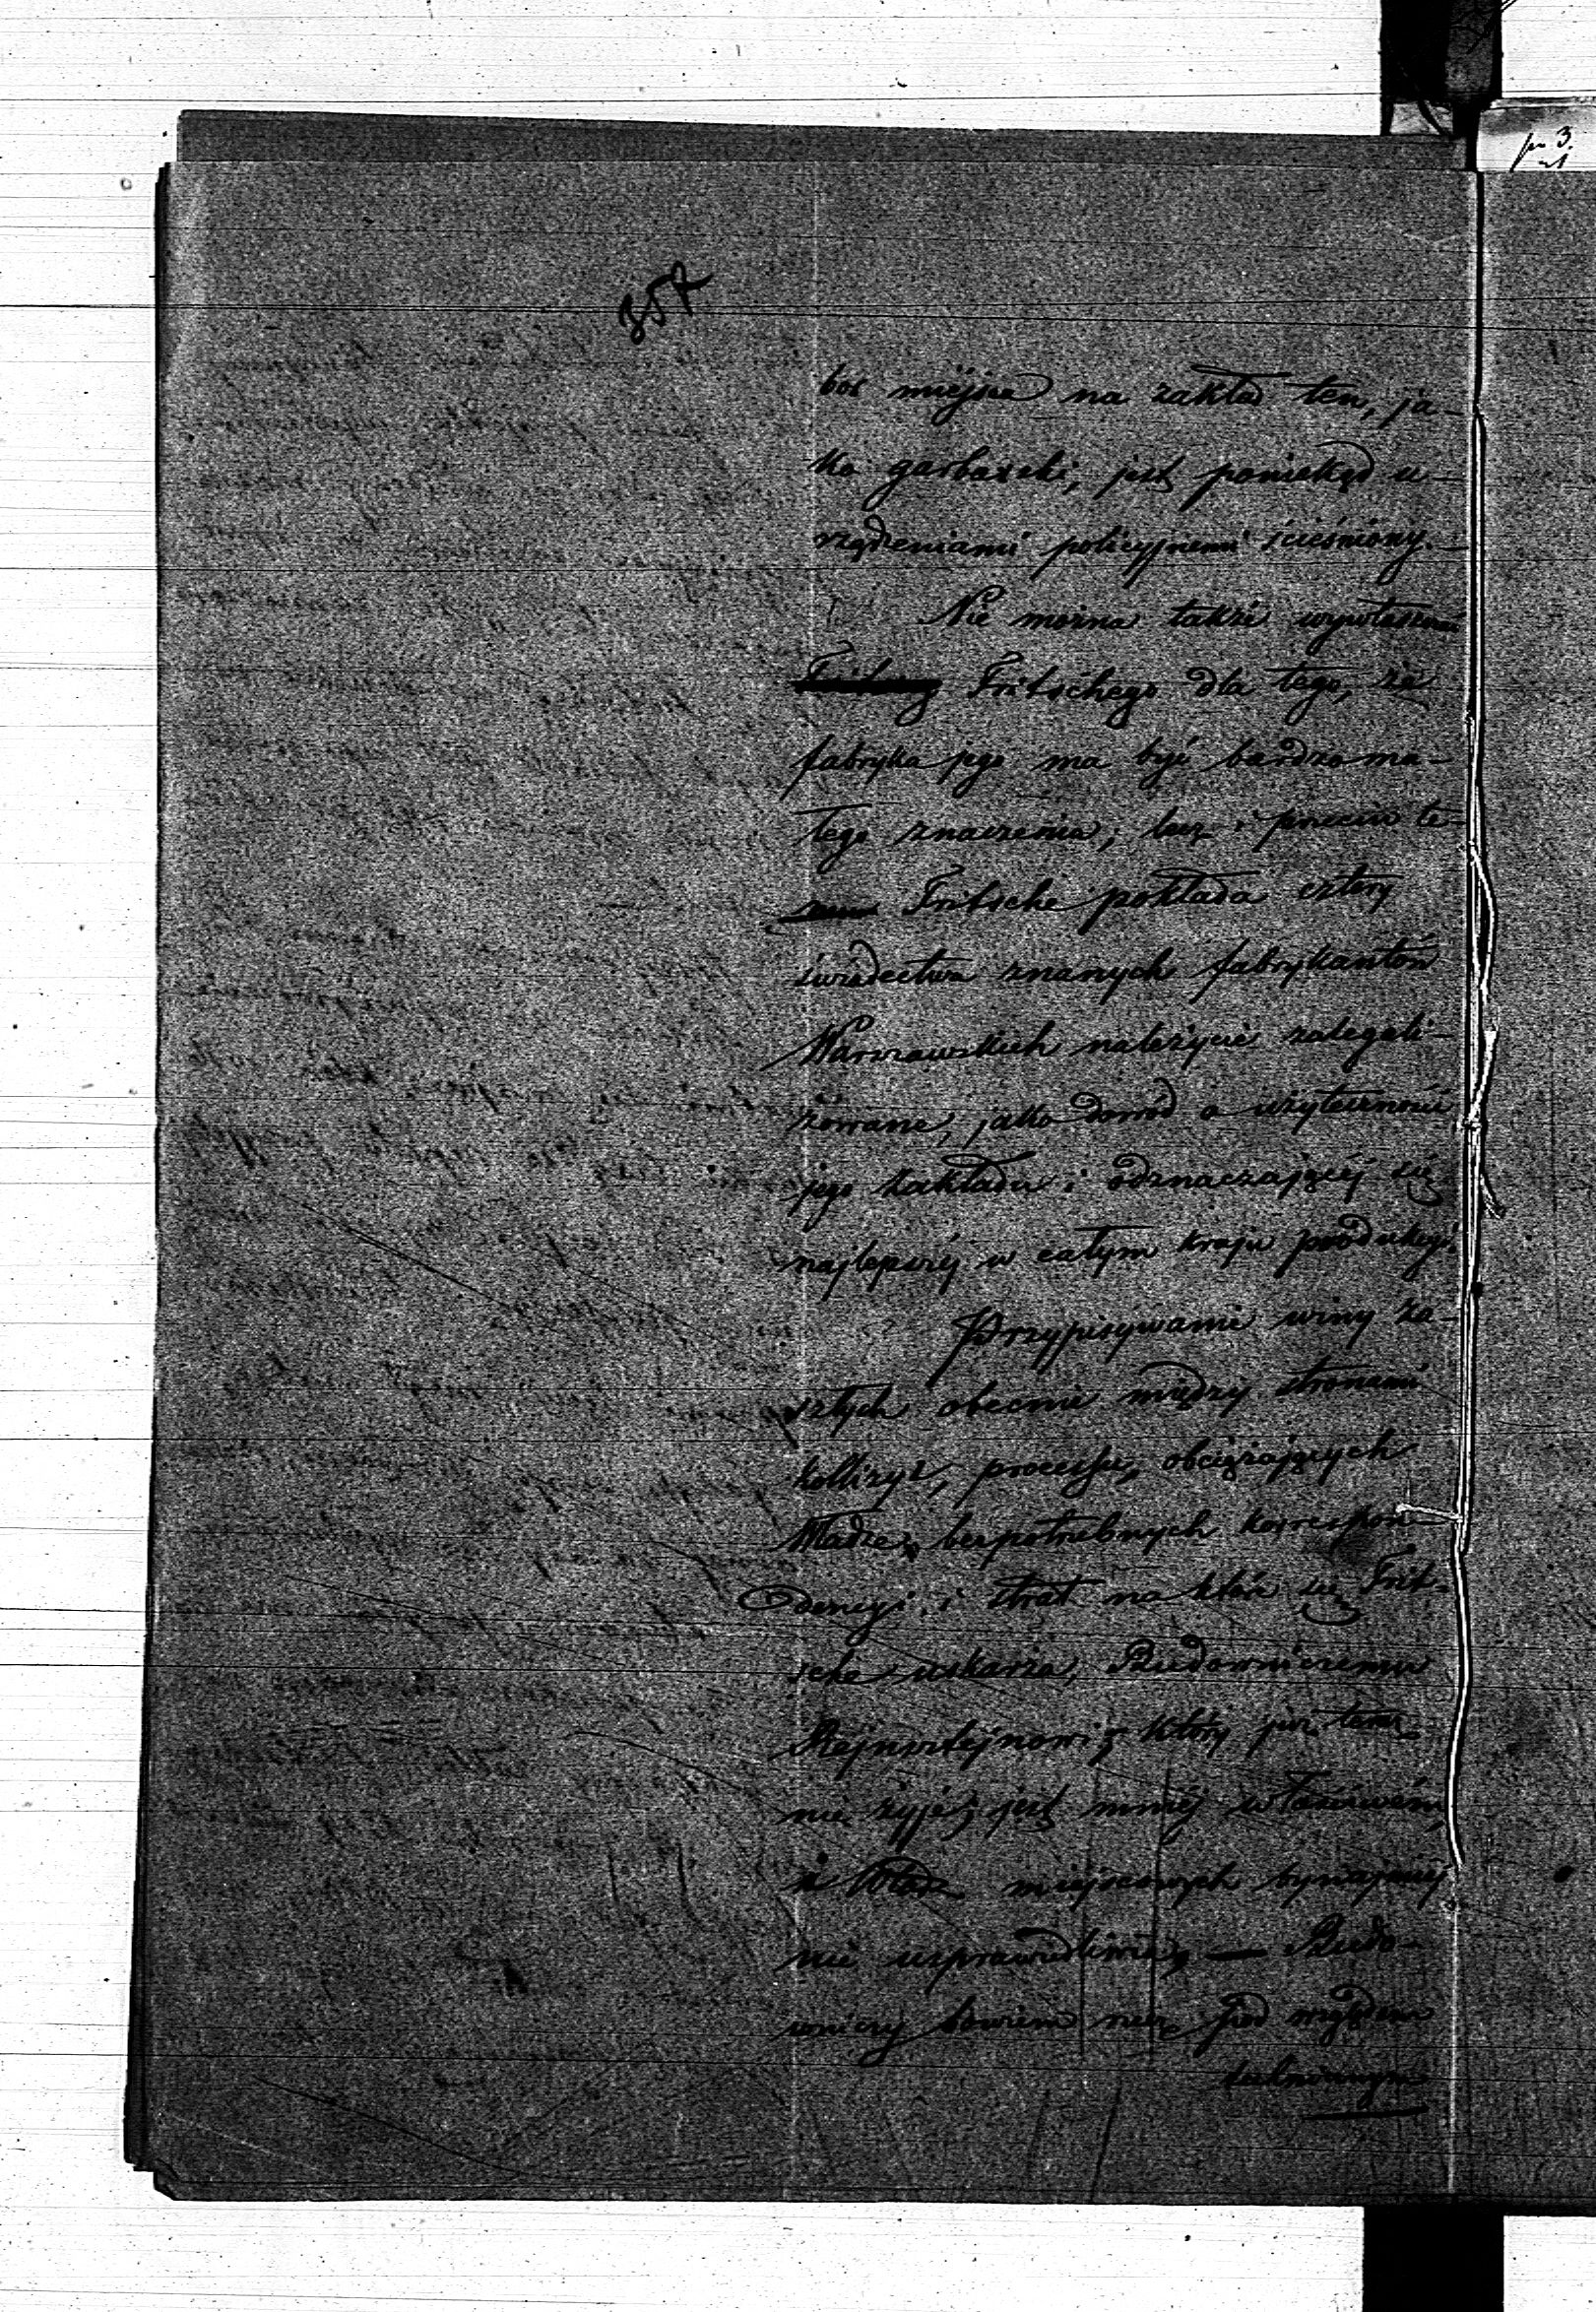 357
bór miéjsca na zakład ten, ja-
ko garbarski, jest poniekąd u-
rządzeniami policyjnemi ścieśniony.
Nie można także wywłaszcz
Fritschego dla tego, że
fabryka jego ma być bardzo ma-
łego znaczenia; lecz i przeciw te-
Fritsche pokłada cztery
świadectwa znanych fabrykantów
Warszawskich należycie zalegali-
zowane, jako dowód o użyteczności
jego zakładu i odznaczającej się
najlepszéj w całym kraju produkcyi
Przypisywanie winy za-
szłych obecnie między stronami
kollizyi, processu, obciążających
Władze bezpotrzebnych korrespon-
dencyi i strat na które się Frit-
sche uskarża, Budowniczemu
Rejnsztejnowi, który już teraz
nie żyje, jest mniéj właściwém
i Władz miejscowych bynajmniéj
nie usprawiedliwia — Budo-
wniczy bowiem pod względem